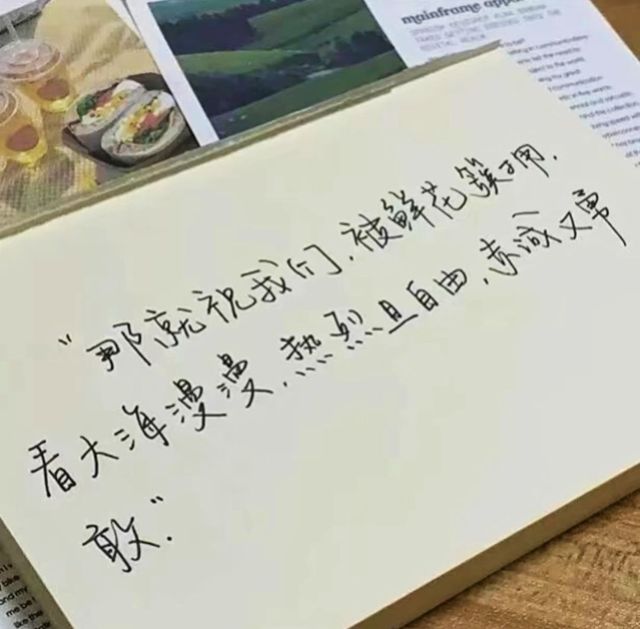 mainframe
“那就祝我们,被鲜花簇拥,
看大海漫漫,热烈且自由,赤诚又勇
敢.”